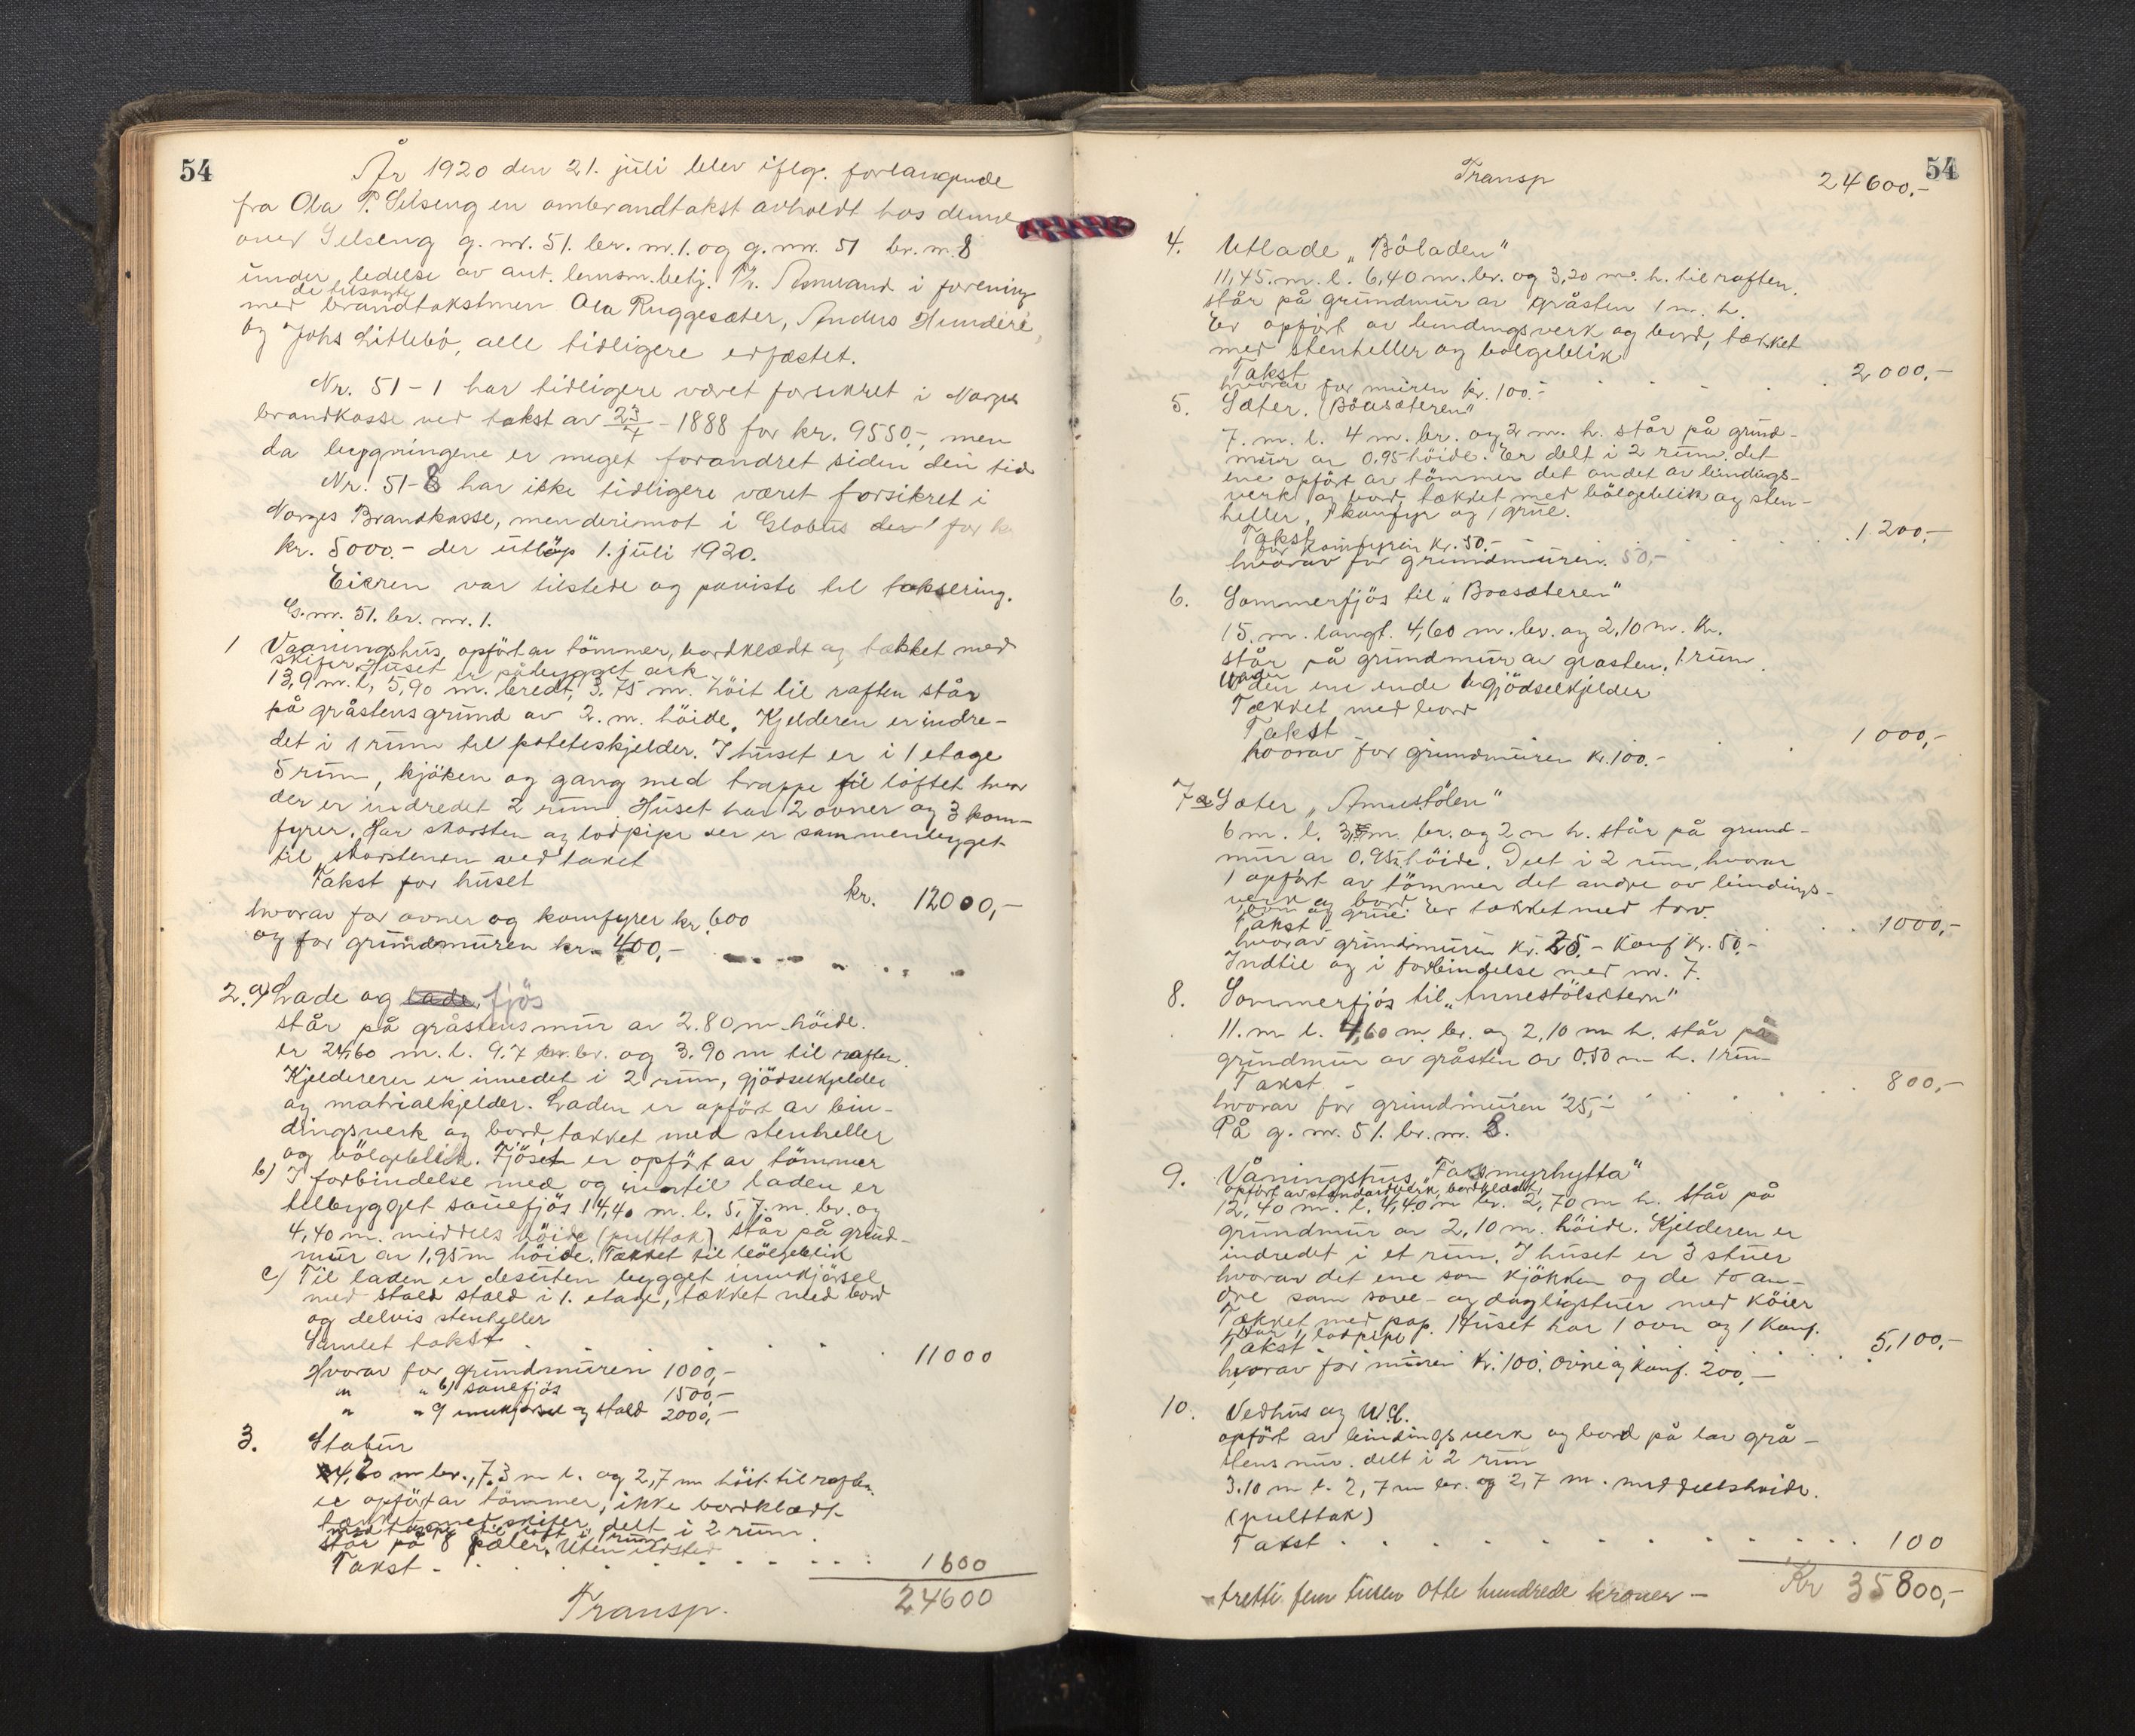 54
År 1920 den 21. juli blev iflg. forlangende
fra Ola P. Selseng en ombrandtakst avholdt hos denne
over Selseng g. nr. 51. br. nr. 1. og g. nr. 51 br. nr. 8
under ledelse av ant. lensm. betj. i forening
med de tilkaldte brandtakstmen Ola Ruggesæter, Anders Hundere,
og Johs Litlebö, alle tidligere edfæstet.
Nr. 51-1 har tidligere været forsikret i Norges
brandkasse ved takst av - 1888 for kr. 9550.-, men
da bygningene er meget forandret siden den tid
Nr. 51-8 har ikke tidligere været forsikret i
Norges Brandkasse, men derimot i Globus for
kr. 5000.- der utlöp 1. juli 1920.
Eieren var tilstede og paviste til taksering.
G. nr. 51. br. nr. 1.
1 Vaaningshus, opfört av tömmer, bordklædt og tækket med
skifer. Huset er påbygget ark.
13,9 m. l, 5,90 m. bredt, 3.75 m. höit til raften står
på gråstensgrund av 2. m. höide. Kjelderen er indre-
det i 1 rum til poteteskjelder. I huset er i 1 etage
5 rum, kjöken og gang med trappe til loftet hvor
der er indredet 2 rum. Huset har 2 ovner og 3 kom-
fyrer. Har skorsten og lodpipe der er sammenbygget
til skorstenen ved taket
Takst for huset kr. 12000,-
hvorav for ovner og komfyrer kr. 600
og for grundmuren kr. 400,-
2. a) Lade og lade, fjös
står på gråstensmur av 2.80 m höide.
er 24,60 m. l. 9.7 br. og 3.90 m til raften.
Kjeldereren er inredet i 2 rum, gjödselkjelder
og matrialkjelder. Laden er opfört av bin-
dingsverk og bord, tækket med stenheller
og bölgeblik. Fjöset er opfört av tömmer
b) I forbindelse med og inntil laden er
tilbygget sauefjös 14,40 m. l. 5,7. m. br. og
4,40 m. middels höide (pulttak) står på grund-
mur av 1,95 m höide. Tækket til bölgeblik
c) Til laden er desuten bygget innkjörsel
med stald stald i 1. etage, tækket med bord
og delvis stenheller
Samlet takst 11000
Hvorav for grundmuren 1000,-
" " b) sauefjös 1500,-
" " c) innkjörsel og stald 2000,-
3. Stabur
4,20 m br., 7,3 m l. og 2,7 m höit til raften.
er opfört av tömmer, ikke bordklædt
tækket med skifer, delt i 2 rum.
med trappe til loft i 1 rum
står på 8 pæler. Uten ildsted
Takst 1600
24600
Transp.
54
Transp 24600.-
4. Utlade „Böladen"
11,45. m. l. 6,40 m. br. og 3,20 m. h. til raften.
står på grundmur av gråsten 1 m. h.
Er opfört av bindingsverk og bord, tækket
med stenheller og bölgeblik
Takst 2000,-
hvorav for muren kr. 100.-
5. Sæter. (Böasæteren"
7. m. l. 4 m. br. og 2 m. h. står på grund-
mur av 0.95 höide. Er delt i 2 rum, det
ene opfört av tömmer det andet av bindings-
verk og bord, tækket med bölgeblik og sten-
heller, 1 komfyr og 1 grue.
Takst 1200,-
for komfyren kr. 50.-
hvorav for grundmuren. 50,-
6. Sommerfjös til „Boasæteren"
15. m. langt. 4,60 m. br. og 2,10 m. h.
står på grundmur av grasten. 1 rum.
Under den ene ende gjödselkjelder
Tækket med bord
Takst 1000,-
hvorav for grundmuren kr. 100.-
7a Sæter „Anustölen"
6 m. l. m. br. og 2 m h. står på grund-
mur av 0.95 höide. Delt i 2 rum, hvorav
1 opfört av tömmer det andre av bindings-
verk og bord
1 ovn og grue. Er tækket med torv.
Takst 1000,-
hvorav grundmuren kr. 25.- Komf kr. 50.-
Indtil og i forbindelse med nr. 7.
8. Sommerfjös til „Annestölsetern"
11. m l. 4,60 m. br. og 2,10 m h. står på
grundmur av gråsten av 0.50 m h. 1 rum
Takst 800,-
hvorav for grundmuren 25,-
På g. nr. 51. br. nr. 8.
9. Våningshus, myrhytta"
opfört av standardverk, bordklædt,
12,40 m. l. 4,40 m br. 2,70 m h. står på
grundmur av 2,10 m. höide. Kjelderen er
indredet i et rum. I huset er 3 stuer
hvorav det ene som kjökken og de to an-
dre som sove- og dagligstuer med köier
Tækket med pap. Huset har 1 ovn og 1 komf.
Har 1 lodpipe
Takst 5,100,-
hvorav for muren kr. 100. ovne og komf. 200,-
10. Vedhus og W.C.
opfört av bindingsverk og bord på lav grå-
stensmur. delt i 2 rum
3.10 m l. 2,7 m br. og 2,7 m. middelshöide.
(pulttak)
Takst 100
Kr 35800,-
- tretti fem tusen otte hundrede kroner -